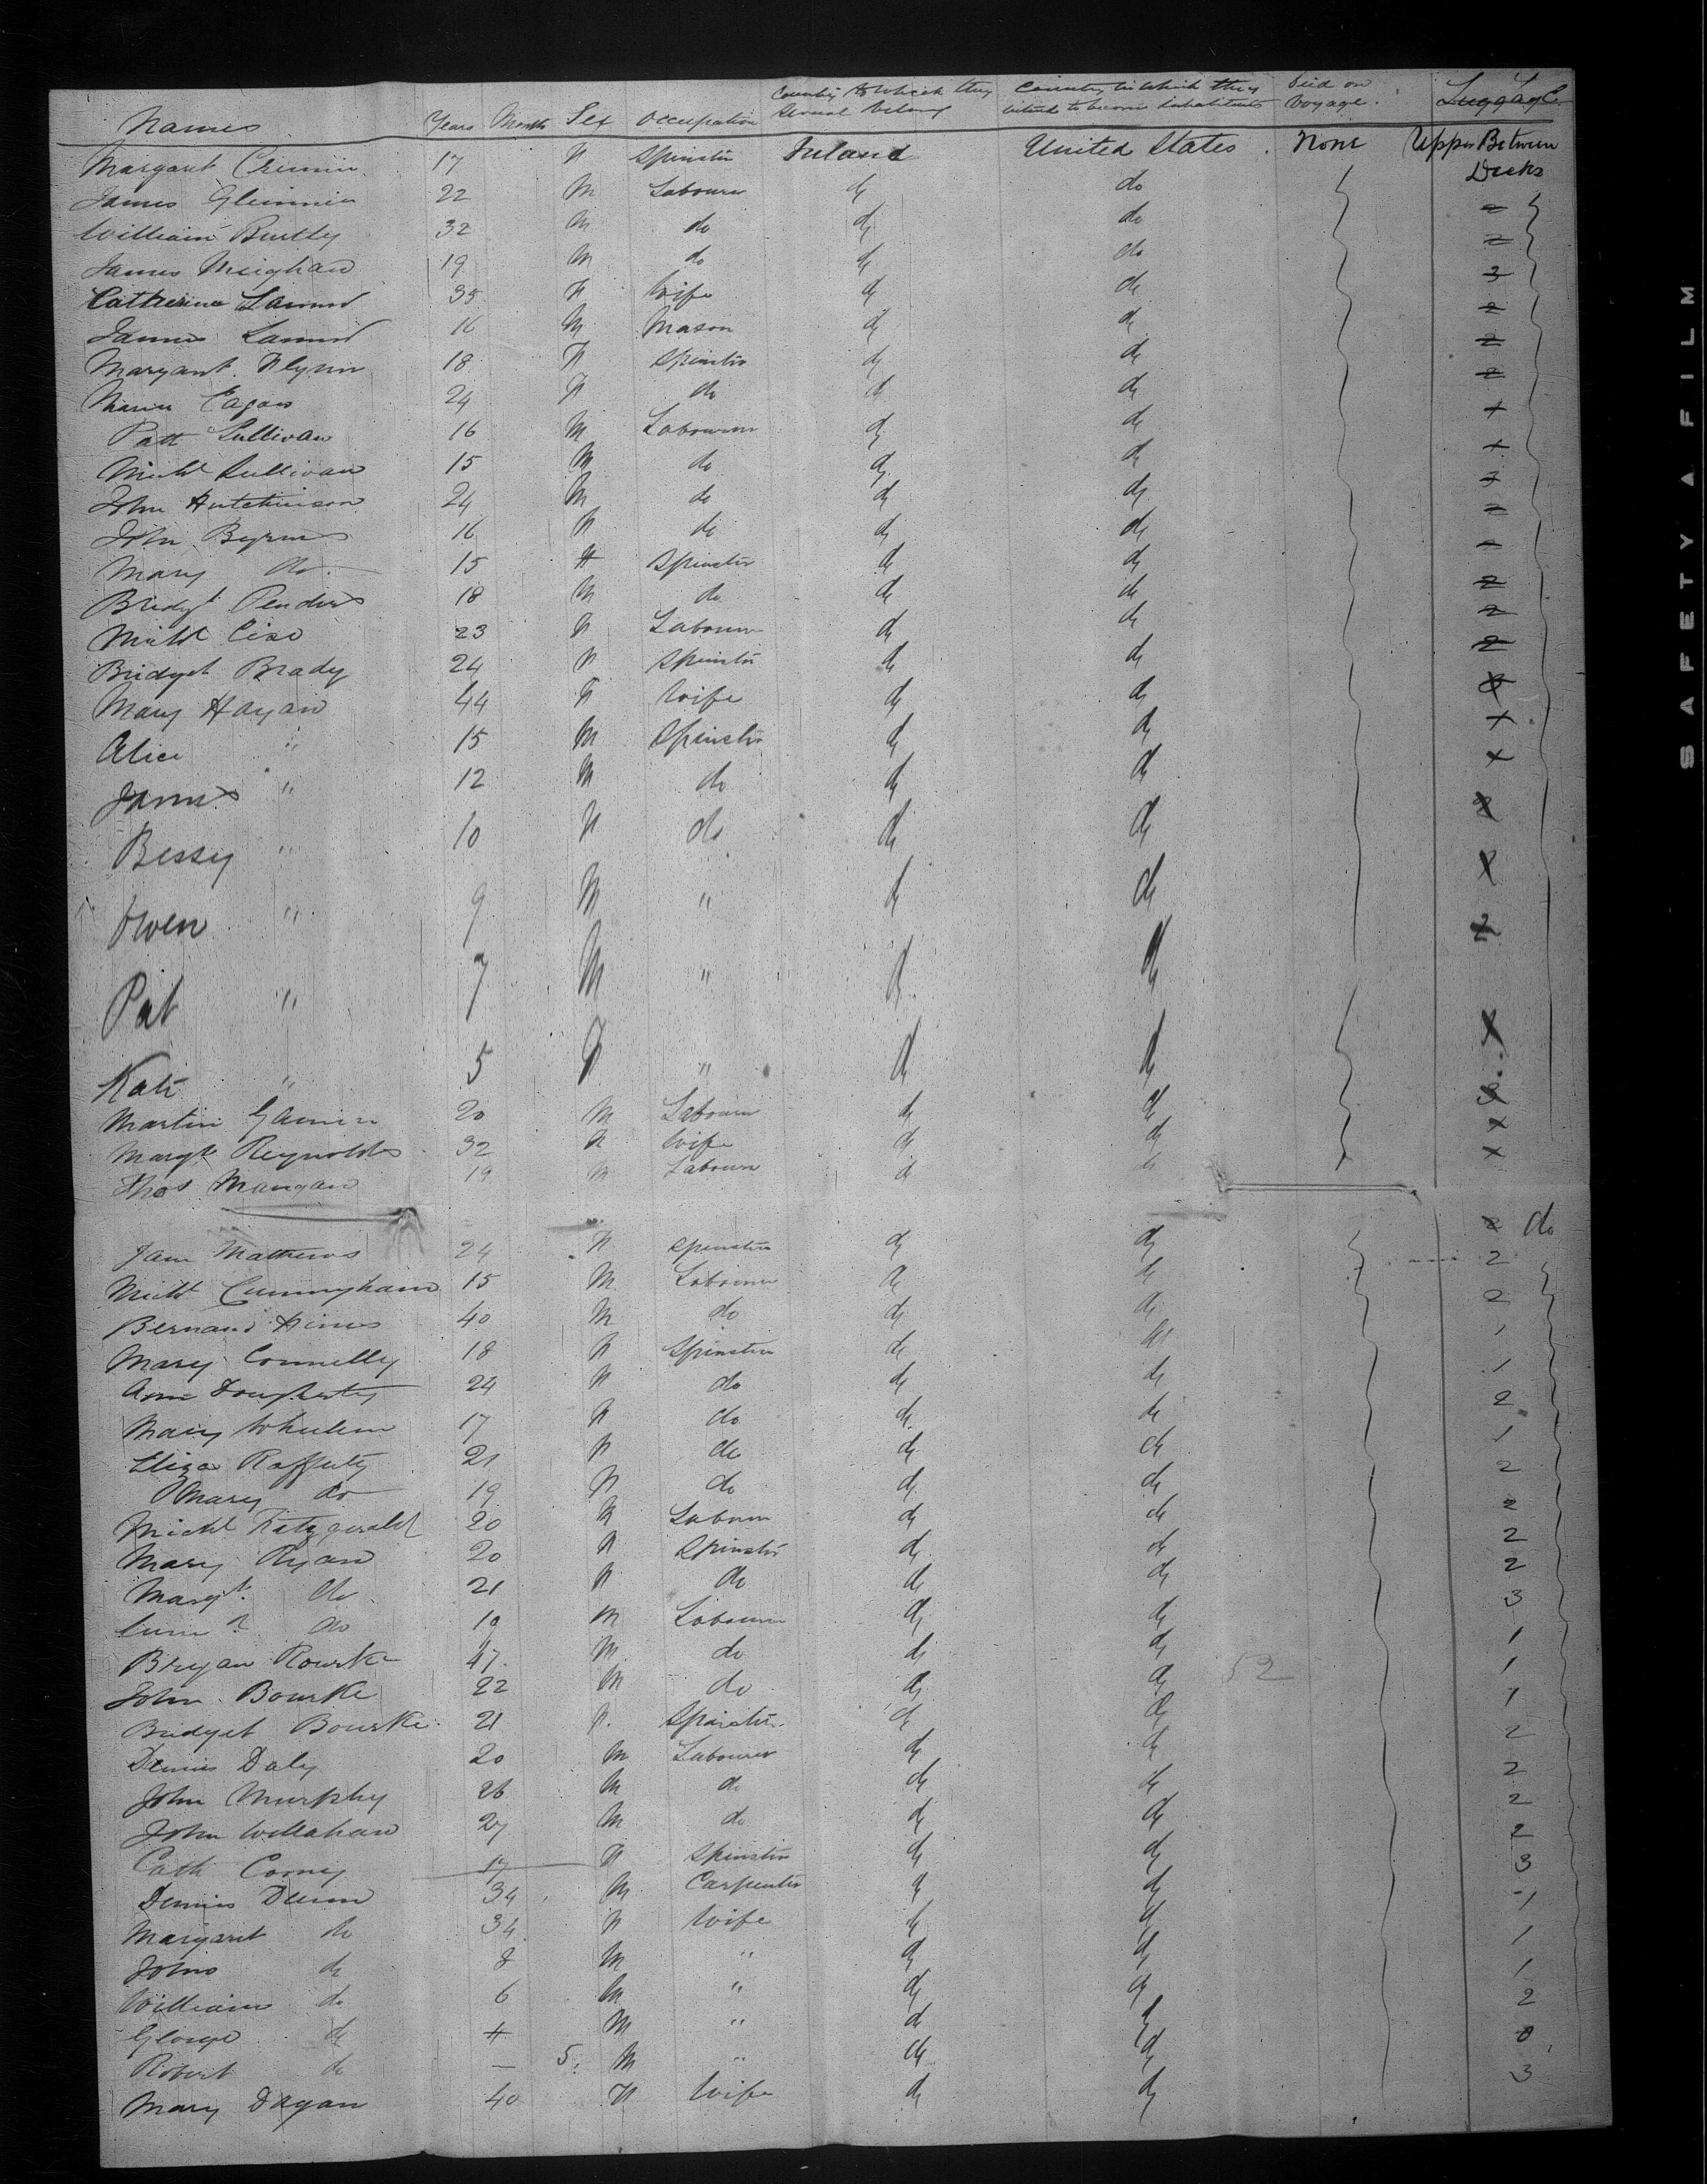 Names Years Months Sex Occupation Country to which they belong Country in which they intend to become inhabitants Died on Voyage. Luggage
Margaret 17 F Spinster Ireland United States. None Upper Between Decks
James 22 M Labourer do do
William 32 M do do do 2
James Meighan 19 M do do do 2
Catherine 35 F Wife do do 3
James 16 M Mason do do 2
Margaret Flynn 18 F Spinster do do 2
Maria Eagan 24 F do do do 2
Patt Sullivan 16 M Labourer do do 1
Michl Sullivan 15 M do do do 1
John Hutchinson 24 M do do do
John Byrnes 16 do do do 2
Mary do 15 F Spinster do do
Bridgt 18 M do do do 2
Michl 23 F Labourer do do 2
Bridget Brady 24 F Spinster do do 2
Mary Hagan 44 F Wife do do
Alice " 15 M Spinster do do 1
James " 12 M do do do
Bessy " 10 F do do do
Owen " 9 M " do do
Pat " 7 M " do do 2
Kate " 5 F " do do
Martin 20 M Labourer do do 3
Margt Reynolds 32 F Wife do do
Thos Mangan 19 M Labourer do do
Jane Mathews 24 F Spinster do do 2 do
Michl Cunningham 15 M Labourer do do 2
Bernard Hines 40 M do do do 2
Mary Connelly 18 F Spinster do do 1
Ann Dougherty 24 F do do do 1
Mary 17 F do do do 2
Eliza Rafferty 21 F do do do 1
Mary do 19 F do do do 2
Michl Fitzgerald 20 Labourer do do 2
Mary Ryan 20 F Spinster do do 2
Margt. do 21 F do do do 2
do 19 M Labourer do do 3
Bryan Rourke 47 M do do do 1
52
John Bourke 22 M do do do 1
Bridget Bourke 21 F. Spinster do do 1
Dennis Daly 20 M Labourer do do 2
John Murphy 26 M do do do 2
John 27 M do do do 2
Cath 17 F Spinster do do 2
Dennis Dunn 34 M Carpenter do do 3
Margaret do 34 F Wife do do 1
John do 8 M " do do 1
William do 6 M " do do 1
George do 4 M " do do 2
Robert do — 5 M " do do 0
Mary Dagan 40 F Wife do do 3
SAFETY A FILM